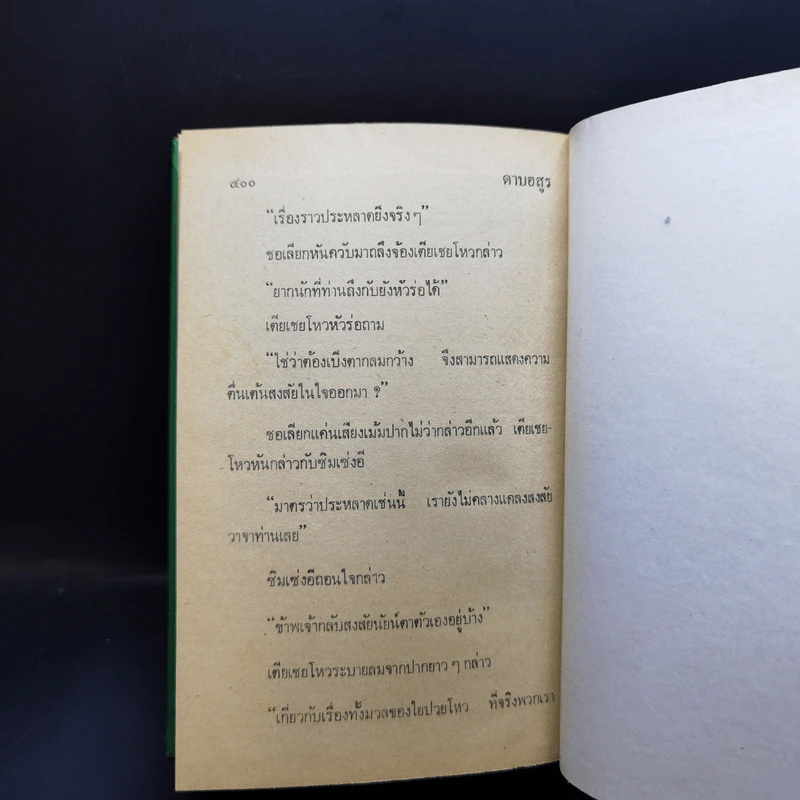 ๔๐๐ ดาบอสูร
“เรื่องราวประหลาดยิ่งจริง ๆ”
ซอเลียกหันควับมาถลึงจ้องเตียเชยโหวกล่าว
“ยากนักที่ท่านถึงกับยังหัวร่อได้”
เตียเชยโหวหัวร่อถาม
“ใช่ว่าต้องเบิ่งตากลมกว้าง จึงสามารถแสดงความ
ตื่นเต้นสงสัยในใจออกมา ?”
ซอเลียกแค่นเสียงเม้มปากไม่ว่ากล่าวอีกแล้ว เตียเชย-
โหวหันกล่าวกับซิมเซ่งอี
“มาตรว่าประหลาดเช่นนี้ เรายังไม่คลางแคลงสงสัย
วาจาท่านเลย”
ซิมเซ่งอีถอนใจกล่าว
“ข้าพเจ้ากลับสงสัยนัยน์ตาตัวเองอยู่บ้าง”
เตียเชยโหวระบายลมจากปากยาว ๆ กล่าว
“เกี่ยวกับเรื่องทั้งมวลของใยปวยโหว ที่จริงพวกเรา